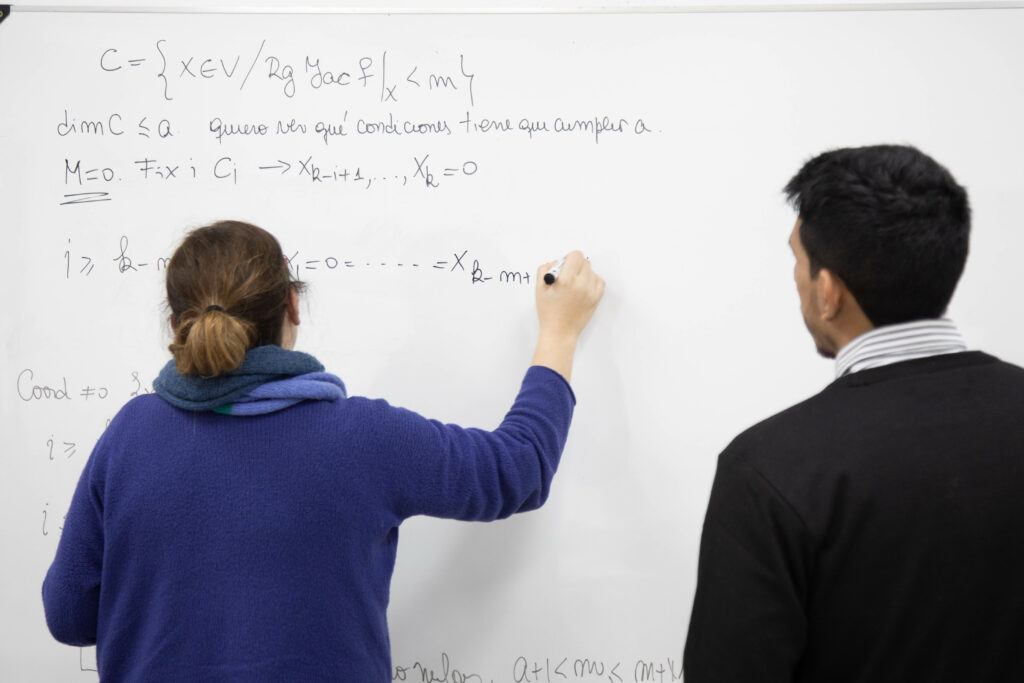 C = { X ∈ V / Rg Jac f |x < m }
dim C ≤ a. quiero ver qué condiciones tiene que cumplir a.
M=0. Fix i Ci → Xk-i+1, ..., Xk = 0
i ≥ k-m X1 = 0 = ..... = X k-m+
Coord ≠ 0
i ≥
i
a+1 < m ≤ m+